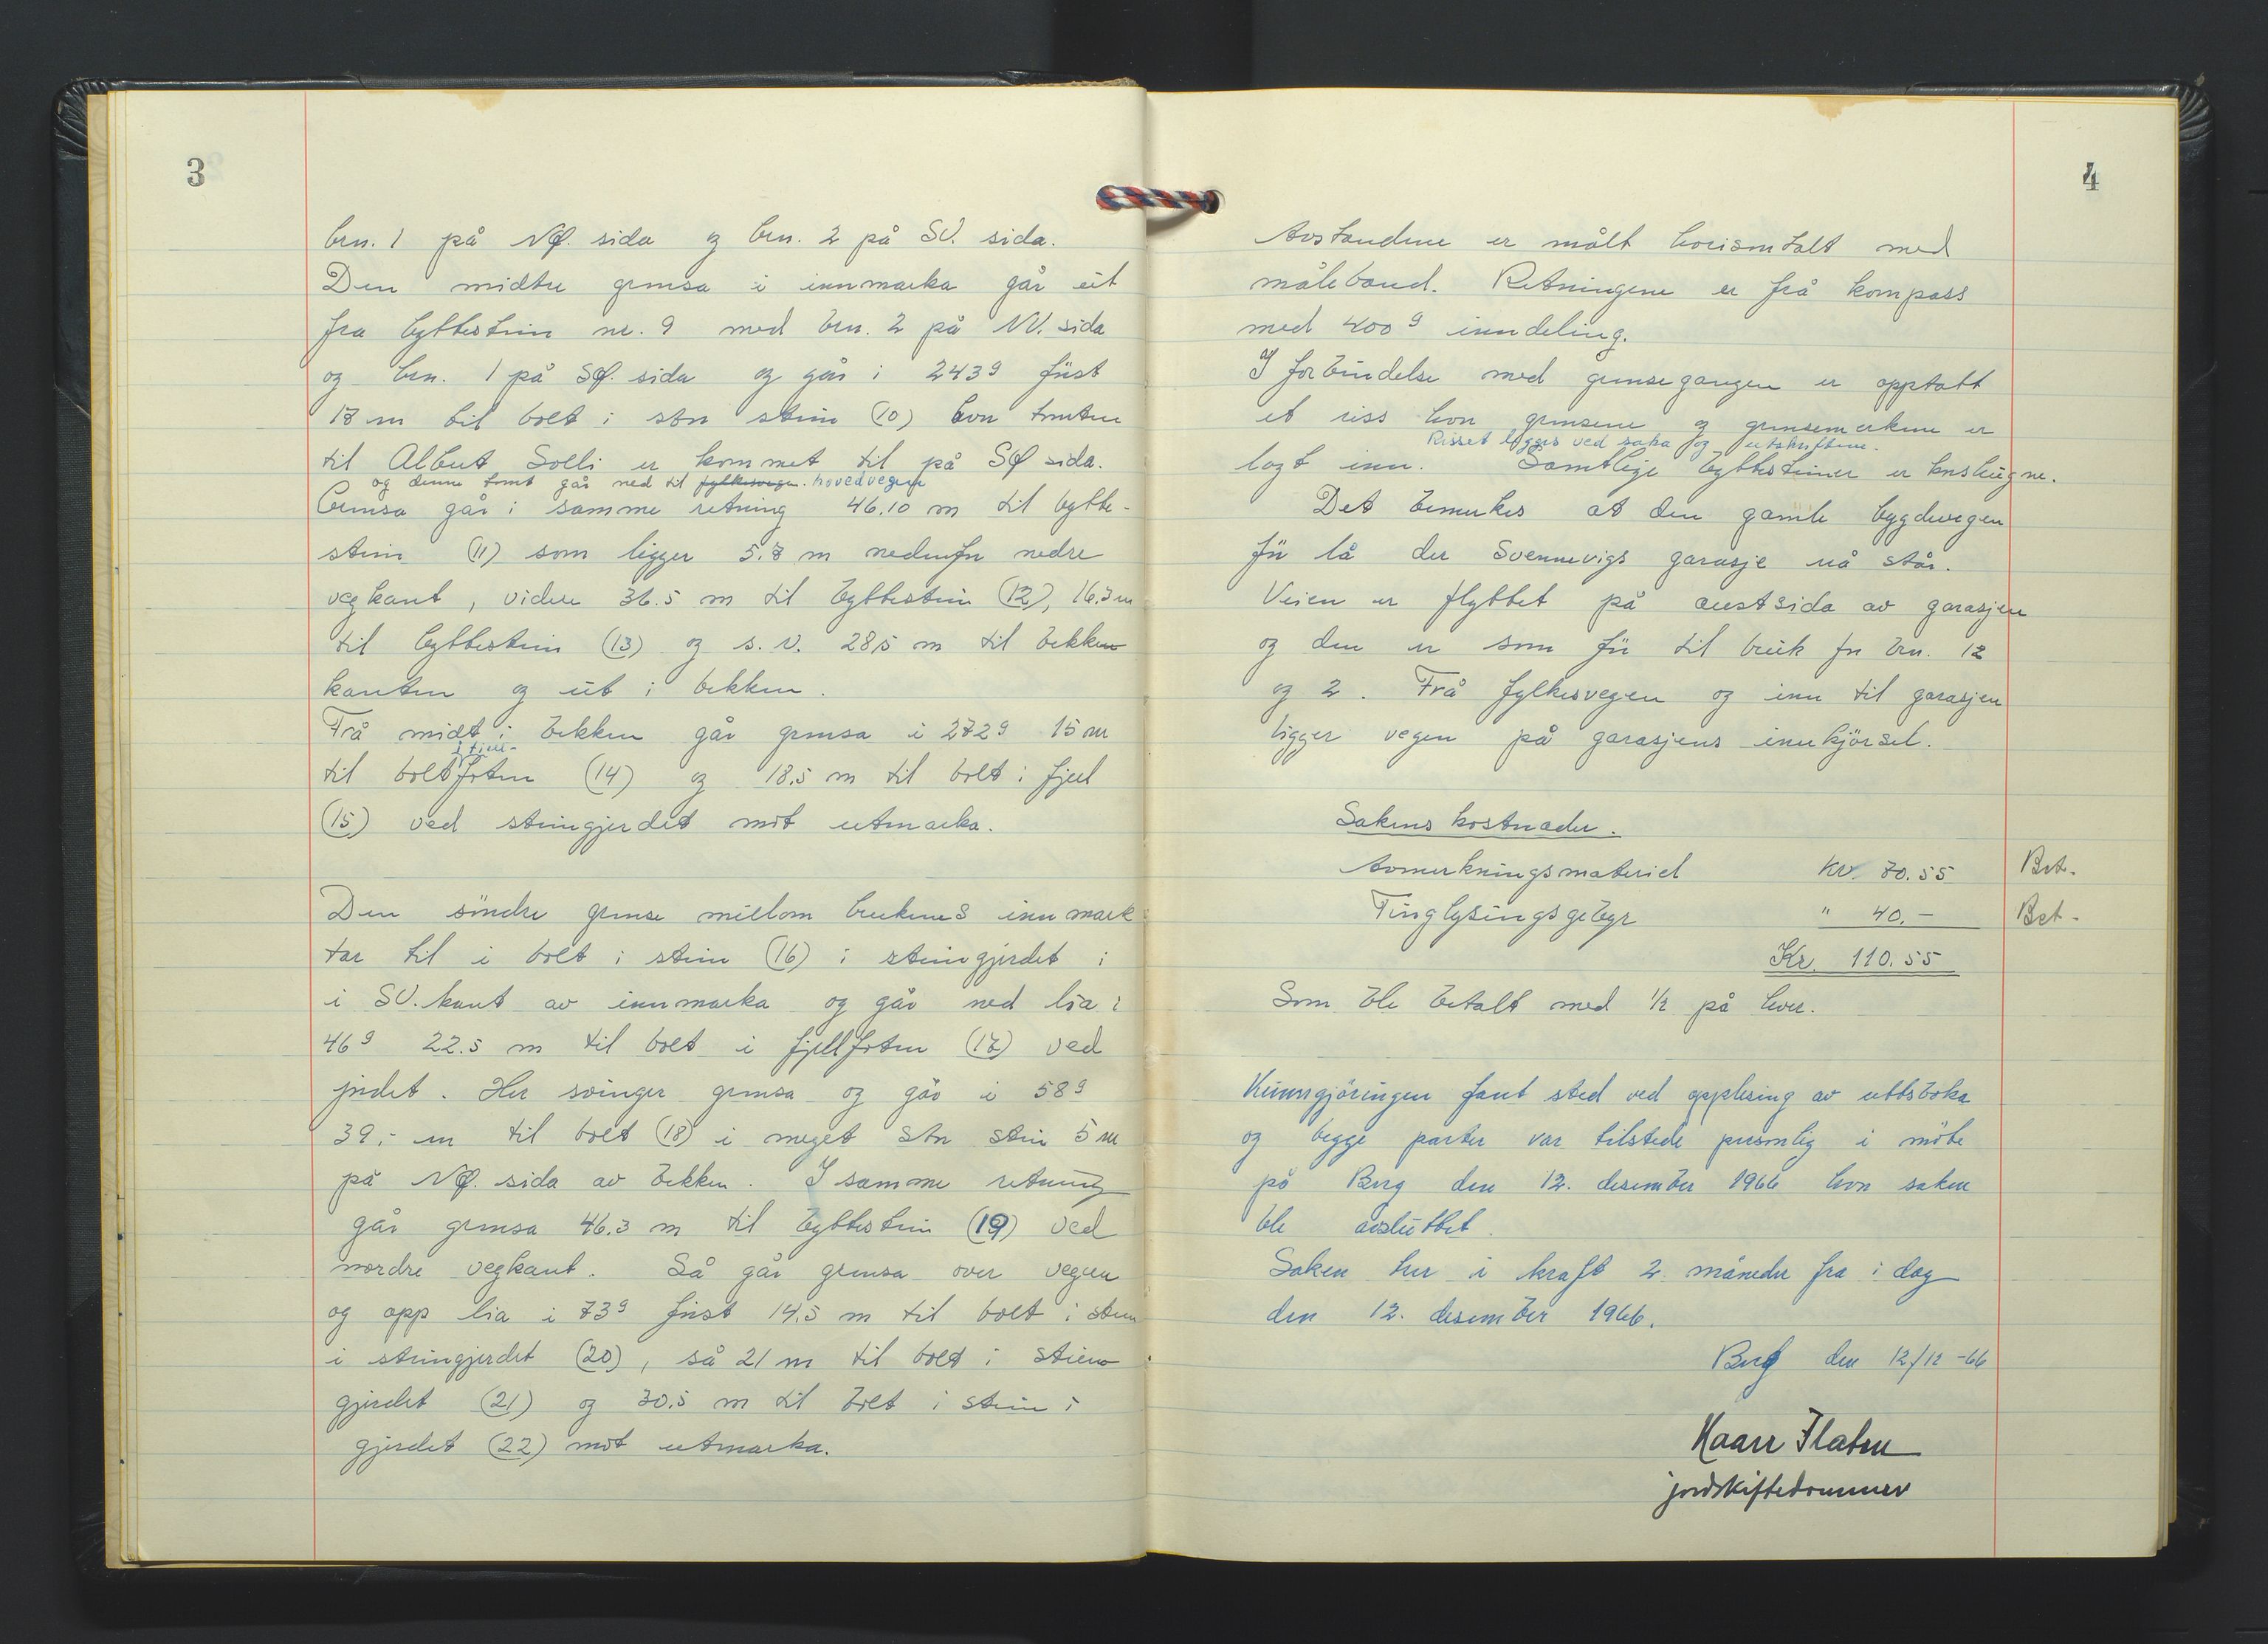 3
brn. 1 på NØ. sida og brn. 2 på SV. sida.
Den midtre grensa i innmarka går ut
fra byttestein nr. 9 med brn. 2 på NV. sida
og brn. 1 på SØ. sida og går i 243 g først
17 m til bolt i stor stein (10) hvor tomten
til Albert Solli er kommet til på SØ sida.
og denne tomt går ned til fylkesvegen. hovedvegen
Grensa går i samme retning 46.10 m til bytte-
stein (11) som ligger 5.7 m nedenfor nedre
vegkant, videre 36.5 m til byttestein (12), 16.3 m
til byttestein (13) og s. v. 28,5 m til bekken
kanten og ut i bekken.
Frå midt i bekken går grensa i 272 g 15 m
i fjell-
til bolt foten (14) og 18.5 m til bolt i fjell
(15) ved steingjerdet mot utmarka.
Den söndre grense mellom brukenes innmark
tar til i bolt i stein (16) i steingjerdet i
i SV. kant av innmarka og går ned lia i
46 g 22.5 m til bolt i fjellfoten (17) ved
jordet. Her svinger grensa og går i 58 g
39,- m til bolt (18) i meget stor stein 5 m
på NØ. sida av bekken. I samme retning
går grensa 46.3 m til byttestein (19) ved
nordre vegkant. Så går grensa over vegen
og opp lia i 73 g först 14.5 m til bolt i stein
i steingjerdet (20), så 21 m til bolt i stein
gjerdet (21) og 30.5 m til bolt i stein i
gjerdet (22) mot utmarka.
4
Avstandene er målt horisontalt med
måleband. Retningene er frå kompass
med 400 g inndeling.
I forbindelse med grensegangen er opptatt
et riss hvor grensene og grensemerkene er
Risset legges ved saka og utskriftene.
lagt inn. Samtlige byttesteiner er krosshugne.
Det bemerkes at den gamle bygdevegen
för lå der Svennevigs garasje nå står.
Veien er flyttet på austsida av garasjen
og den er som för til bruk for brn. 12
og 2. Frå fylkesvegen og inn til garasjen
ligger vegen på garasjens innkjörsel.
Sakens kostnader.
Avmerkningsmateriel Kr. 70.55 Bet.
Tinglysingsgebyr " 40.- Bet.
Kr. 110.55
Som ble betalt med 1/2 på hver.
Kunngjöringen fant sted ved opplesing av rettsboka
og begge parter var tilstede personlig i möte
på Berg den 12. desember 1966 hvor saken
ble avsluttet.
Saken trer i kraft 2 måneder fra i dag
den 12. desember 1966.
Berg den 12/12 -66
Kaare Flaten
jordskiftedommer